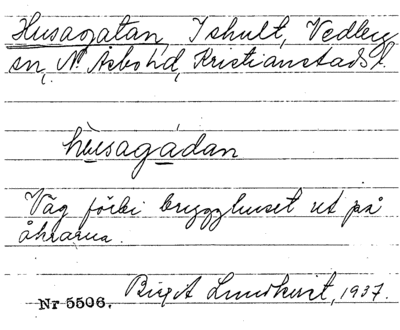 Husagatan, Ishult, Vedby
sn, N. Åsbo hd, Kristianstads l.
hùsagádan
Väg förbi brygghuset ut på
åkrarna.
Birgit Lundkvist, 1937.
Nr 5506.